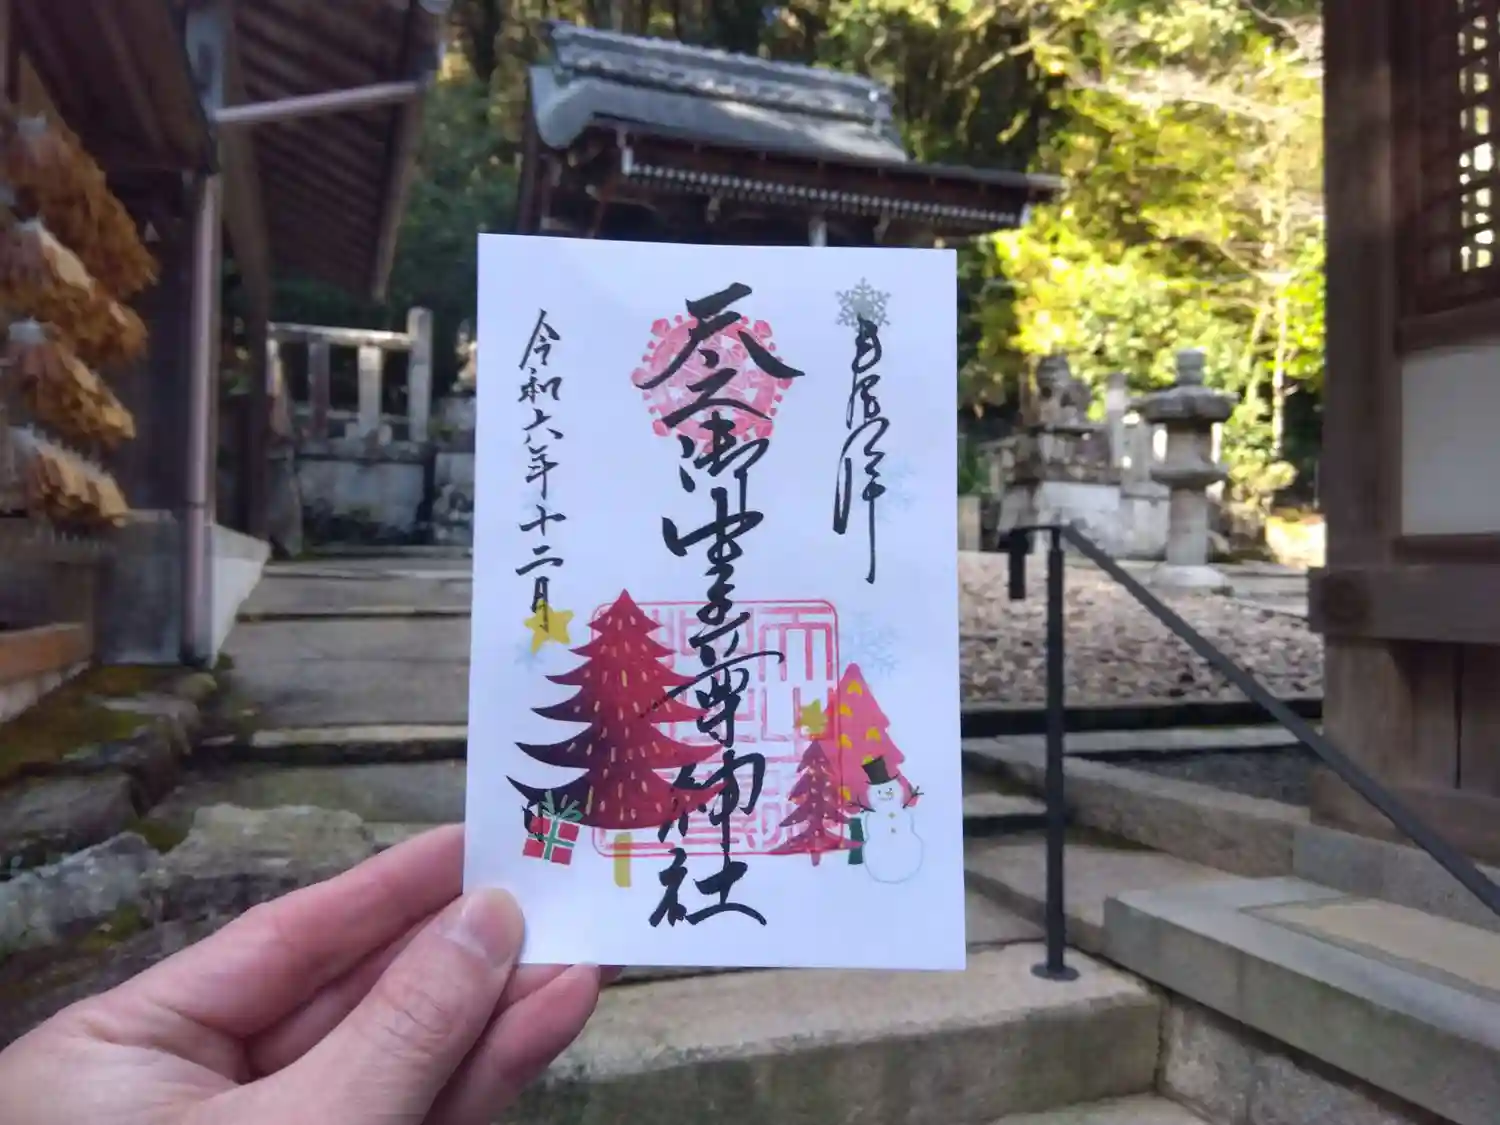 天之御中主尊神社
令和六年十二月